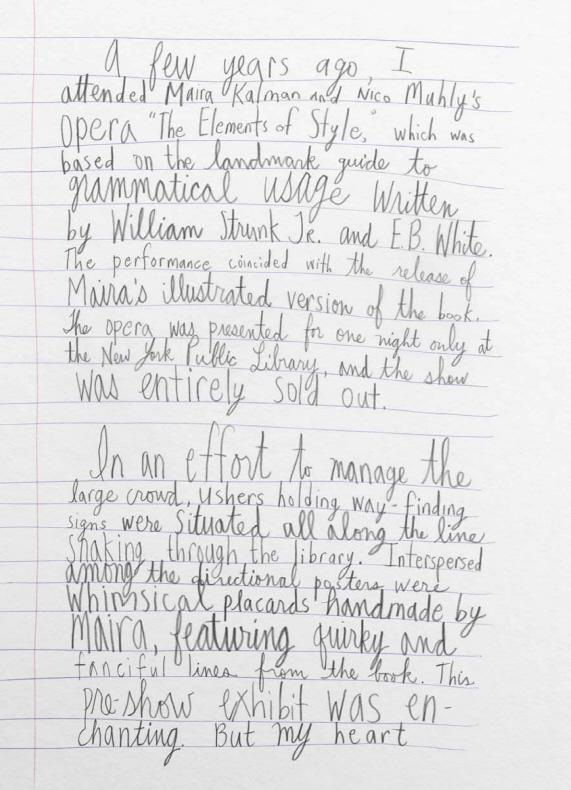 A few years ago, I
attended Maira Kalman and Nico Muhly's
opera "The Elements of Style," which was
based on the landmark guide to
grammatical usage written
by William Strunk Jr. and E.B. White.
The performance coincided with the release of
Maira's illustrated version of the book.
The opera was presented for one night only at
the New York Public Library, and the show
was entirely sold out.
In an effort to manage the
large crowd, ushers holding way-finding
signs were situated all along the line
snaking through the library. Interspersed
among the directional posters were
whimsical placards handmade by
Maira, featuring quirky and
fanciful lines from the book. This
pre-show exhibit was en-
chanting. But my heart